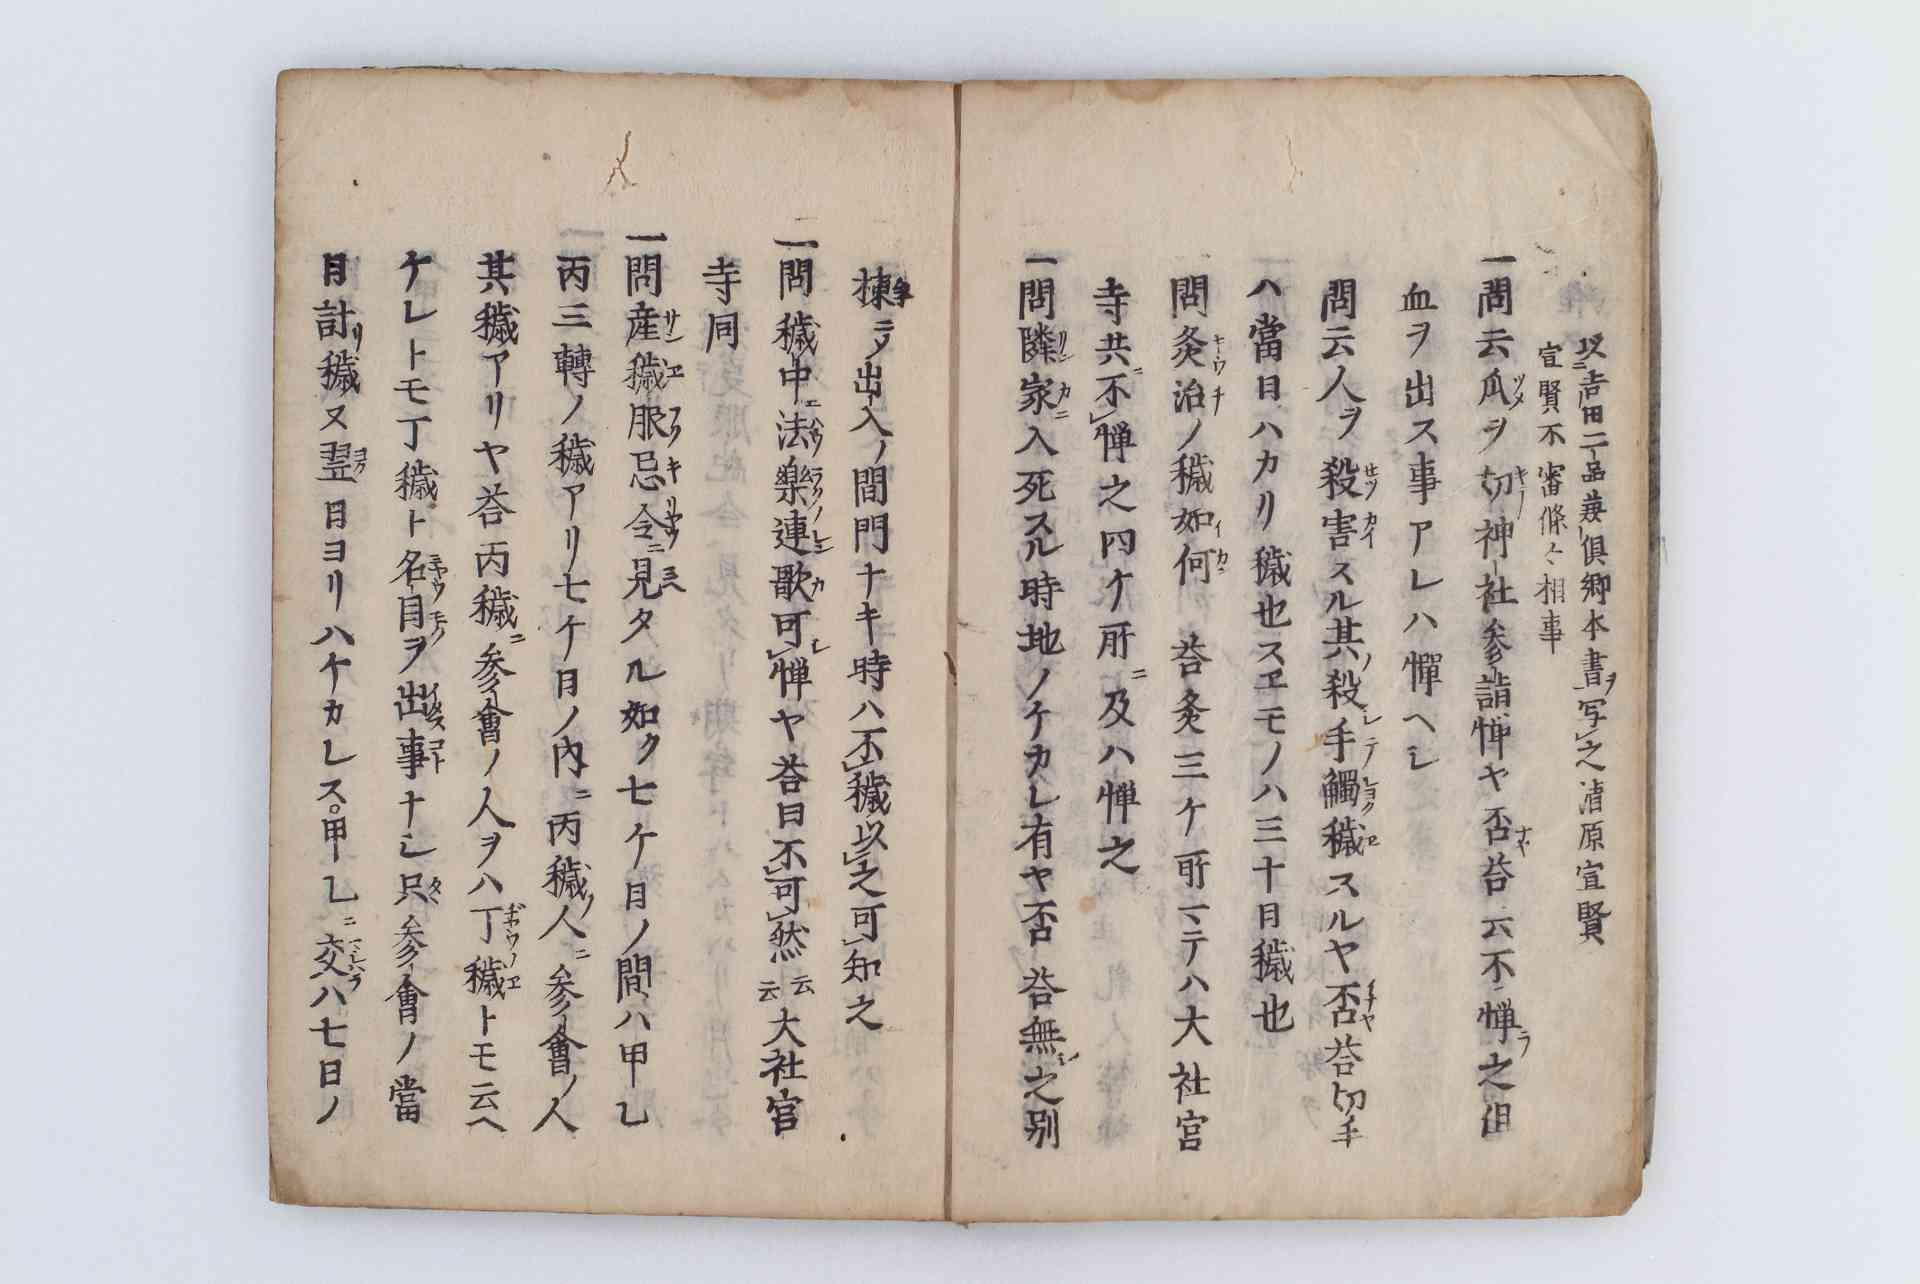 以吉田二品兼倶卿本書ヲ写之清原宣賢
宣賢不審條々相事
一問云爪ヲ切神社参詣憚ヤ否荅云不憚之但
血ヲ出ス事アレハ憚ヘシ
問云人ヲ殺害スル其殺手觸穢スルヤ否荅切手
ハ當日ハカリ穢也スヱモノハ三十日穢也
問灸治ノ穢如何 荅灸三ケ所マテハ大社宮
寺共不憚之四ケ所ニ及ハ憚之
一問隣家入死スル時地ノケカレ有ヤ否 荅無之別
棟ニ乄出入ノ間門ナキ時ハ不穢以之可知之
一問穢中法樂連歌可憚ヤ荅曰不可然云云大社宮
寺同
一問産穢服忌令ニ見タル如ク七ケ日ノ間ハ甲乙
丙三轉ノ穢アリ七ケ日ノ内ニ丙穢ノ人ニ参會ノ人
其穢アリヤ荅丙穢ニ参會ノ人ヲハ丁穢トモ云ヘ
ケレトモ丁穢ト名目ヲ出事ナシ只参會ノ當
日計穢ヌ翌日ヨリハケカレス。甲乙ニ交ハ七日ノ